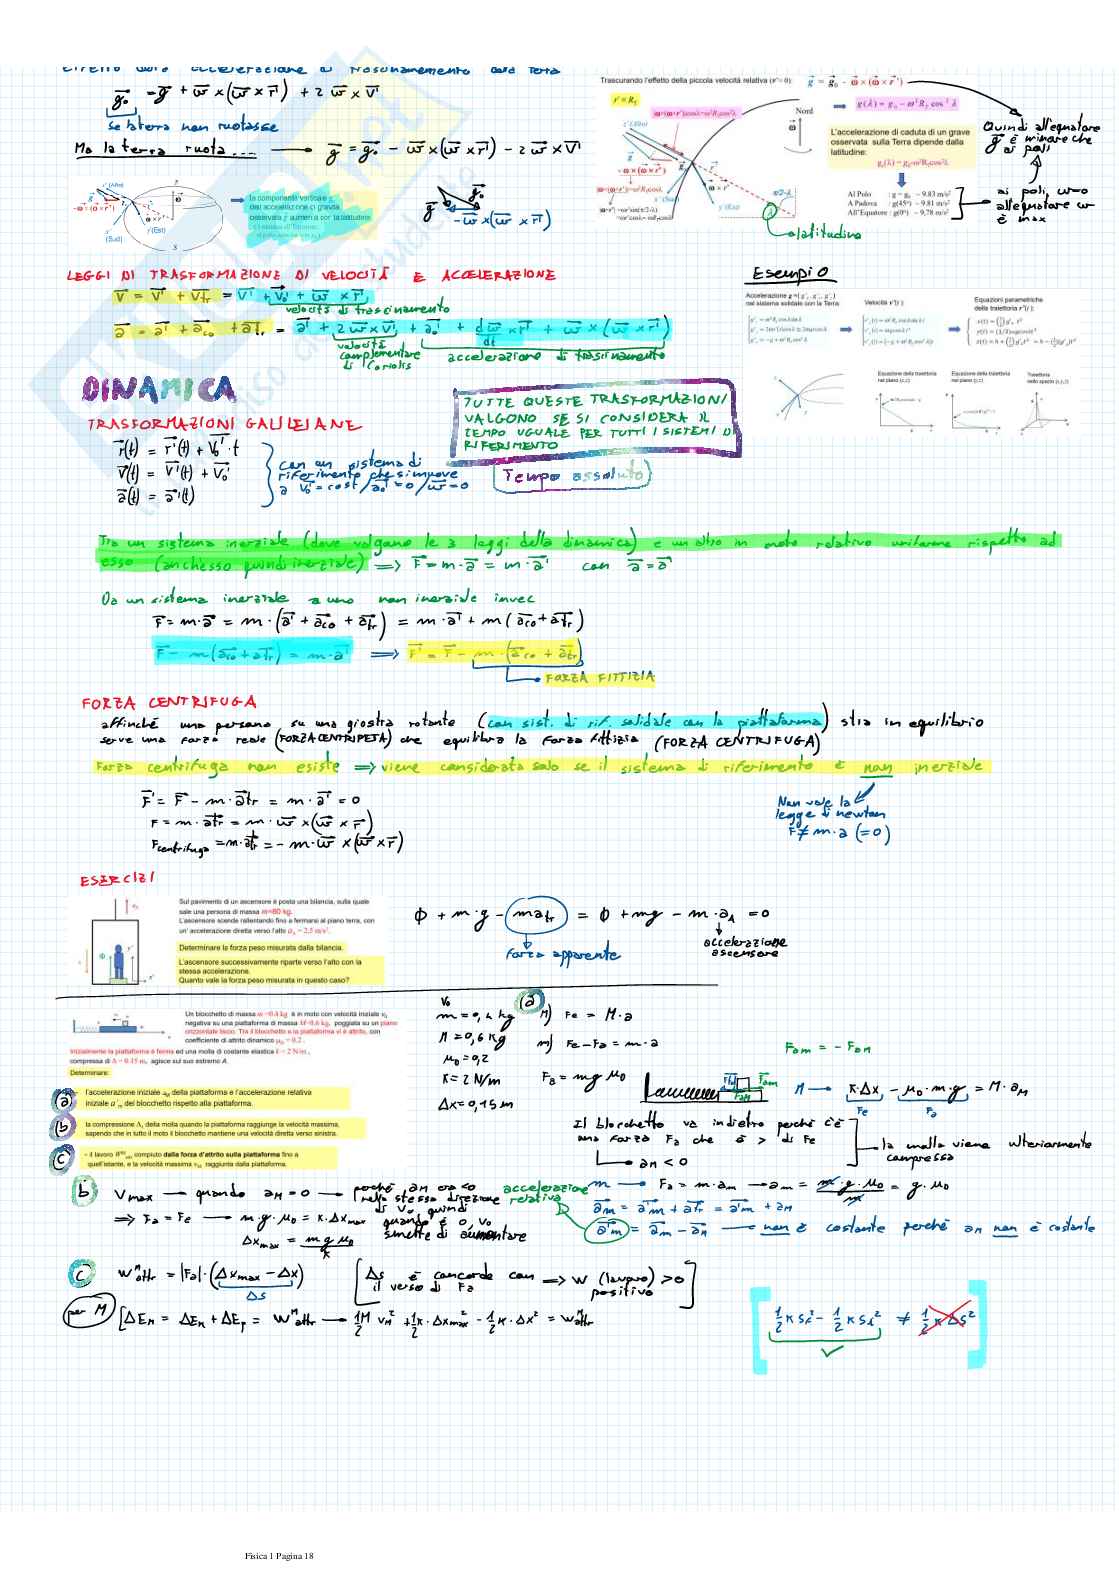 Effetto della accelerazione di trascinamento della Terra
g₀ = g + ω×(ω×r') + 2ω×v'
se la terra non ruotasse
Ma la terra ruota... → g = g₀ − ω×(ω×r') − 2ω×v'
Trascurando l'effetto della piccola velocità relativa (v'≈0): g = g₀ − ω×(ω×r')
r' ≈ R_T
g(λ) = g₀ − ω²R_T cos²λ
Nord
L'accelerazione di caduta di un grave
osservata sulla Terra dipende dalla
latitudine:
Al Polo : g = g₀ ~ 9.83 m/s²
A Padova : g(45°) ~ 9.81 m/s²
All'Equatore : g(0°) ~ 9,78 m/s²
Quindi all'equatore
g è minore che
ai poli
ai poli, ω=0
all'equatore ω
è max
λ latitudine
z' (Alto)
x' (Sud)
y' (Est)
z' (Alto)
y' (Est)
(Sud)
la componente verticale
dell'accelerazione di gravità
osservata g aumenta con la latitudine
−ω×(ω×r')
LEGGI DI TRASFORMAZIONE DI VELOCITÀ E ACCELERAZIONE
v = v' + v_tr = v' + v₀' + ω×r'
velocità di trascinamento
a = a' + a_co + a_tr = a' + 2ω×v' + a₀' + dω/dt×r' + ω×(ω×r')
velocità
complementare
di Coriolis
accelerazione di trascinamento
Esempio
Accelerazione
nel sistema solidale con la Terra
Velocità v'(t):
Equazioni parametriche
della traiettoria r'(t):
Equazione della traiettoria
nel piano (x,z)
Equazione della traiettoria
nel piano
Traiettoria
nello spazio (x,y,z)
DINAMICA
TRASFORMAZIONI GALILEIANE
r(t) = r'(t) + v₀'·t
v(t) = v'(t) + v₀'
a(t) = a'(t)
con un sistema di
riferimento che si muove
a v₀' = cost / a₀' = 0 / ω = 0
TUTTE QUESTE TRASFORMAZIONI
VALGONO SE SI CONSIDERA IL
TEMPO UGUALE PER TUTTI I SISTEMI DI
RIFERIMENTO
Tempo assoluto
Tra un sistema inerziale (dove valgano le 3 leggi della dinamica) e un altro in moto relativo uniforme rispetto ad
esso (anchesso quindi inerziale) ⟹ F = m·a = m·a' con a = a'
Da un sistema inerziale a uno non inerziale invec
F = m·a = m·(a' + a_co + a_tr) = m·a' + m(a_co + a_tr)
F − m(a_co + a_tr) = m·a' ⟹ F' = F − m·(a_co + a_tr)
FORZA FITTIZIA
FORZA CENTRIFUGA
affinché una persona su una giostra rotante (con sist. di rif. solidale con la piattaforma) stia in equilibrio
serve una forza reale (FORZA CENTRIPETA) che equilibra la forza fittizia (FORZA CENTRIFUGA)
Forza centrifuga non esiste ⟹ viene considerata solo se il sistema di riferimento è non inerziale
Non vale la
legge di newton
F ≠ m·a (=0)
F' = F − m·a_tr = m·a' = 0
F = m·a_tr = m·ω×(ω×r')
F centrifuga = m·a_tr = −m·ω×(ω×r')
ESERCIZI
Sul pavimento di un ascensore è posta una bilancia, sulla quale
sale una persona di massa m=80 kg.
L'ascensore scende rallentando fino a fermarsi al piano terra, con
un' accelerazione diretta verso l'alto a_A = 2,5 m/s².
Determinare la forza peso misurata dalla bilancia.
L'ascensore successivamente riparte verso l'alto con la
stessa accelerazione.
Quanto vale la forza peso misurata in questo caso?
Φ + m·g − m a_tr = Φ + mg − m·a_A = 0
forza apparente
accelerazione
ascensore
Un blocchetto di massa m=0.4 kg è in moto con velocità iniziale v₀
negativa su una piattaforma di massa M=0.6 kg, poggiata su un piano
orizzontale liscio. Tra il blocchetto e la piattaforma vi è attrito, con
coefficiente di attrito dinamico μ_D = 0.2.
Inizialmente la piattaforma è ferma ed una molla di costante elastica k = 2 N/m,
compressa di Δ = 0.15 m, agisce sul suo estremo A.
Determinare:
(a) l'accelerazione iniziale a_M della piattaforma e l'accelerazione relativa
iniziale a'_m del blocchetto rispetto alla piattaforma.
(b) la compressione Δ₁ della molla quando la piattaforma raggiunge la velocità massima,
sapendo che in tutto il moto il blocchetto mantiene una velocità diretta verso sinistra.
(c) - il lavoro W computo dalla forza d'attrito sulla piattaforma fino a
quell'istante, e la velocità massima v_M raggiunta dalla piattaforma.
v₀
m = 0,4 kg
M = 0,6 kg
μ_D = 0,2
K = 2 N/m
Δx = 0,15 m
(a)
M) Fe = M·a
m) Fe − Fa = m·a
Fa = m g μ_D
F_am = − F_aM
M → K·Δx − μ_D·m·g = M·a_M
Fe Fa
Il blocchetto va indietro perché c'è
una forza Fa che è > di Fe
→ a_M < 0
la molla viene ulteriormente
compressa
m → Fa = m·a_m → a_m = m·g·μ_D/m = g·μ_D
a_m = a'_m + a_tr = a'_m + a_M
accelerazione
relativa
a'_m = a_m − a_M → non è costante perché a_M non è costante
(b) Vmax → quando a_M = 0 → perché a_M era <0
nella stessa direzione
di v₀, quindi
quando è 0, v₀
smette di aumentare
⟹ Fa = Fe → m·g·μ_D = K·Δx_max
Δx_max = m g μ_D / K
(c) W^M_attr = |Fa|·(Δx_max − Δx)
Δs
[Δs è concorde con
il verso di Fa ⟹ W (lavoro) > 0
positivo]
per M [ΔE_m = ΔE_k + ΔE_p = W^M_attr → ½ M v_M² + ½ K·Δx_max² − ½ K·Δx² = W^M_attr
[½ K s_f² − ½ K s_i² ≠ ½ K Δs²]
Fisica 1 Pagina 18